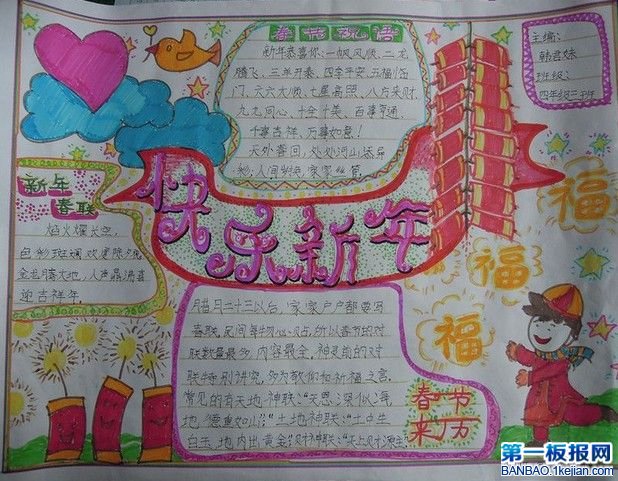 春节祝语
新年恭喜你:一帆风顺,二龙
腾飞,三羊开泰,四季平安,五福临
门,六六大顺,七星高照,八方来财,
九九同心,十全十美,百事亨通,
千事吉祥,万事如意!
天外春回,处处河山添异
彩,人间
主编:
韩君妹
班级:
四年级三班
新年
春联
焰火耀长空,
色彩斑斓欢度除夕夜
金龙腾大地,人声鼎沸喜
迎吉祥年.
快乐新年
腊月二十三以后,家家户户都要写
春联,民间
联数量最多,内容最全,神灵前的对
联特别讲究,多为敬仰和祈福之言,
常见的有天地神联:“天恩深似海,
地德重如山”;土地神联:“土中生
白玉,地内出黄金”;财神联:“天上财源主
春节
来历
福
福
福
第一板报网
BANBAO.1kejian.com